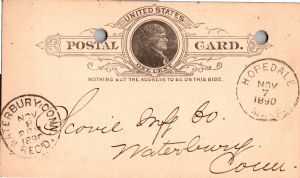 UNITED STATES
POSTAL CARD.
ONE CENT
NOTHING BUT THE ADDRESS TO BE ON THIS SIDE.
HOPEDALE
NOV
7
1890
MASS.
WATERBURY, CONN.
NOV
8
1890
REC'D.
Scovill Mfg Co.
Waterbury
Conn.